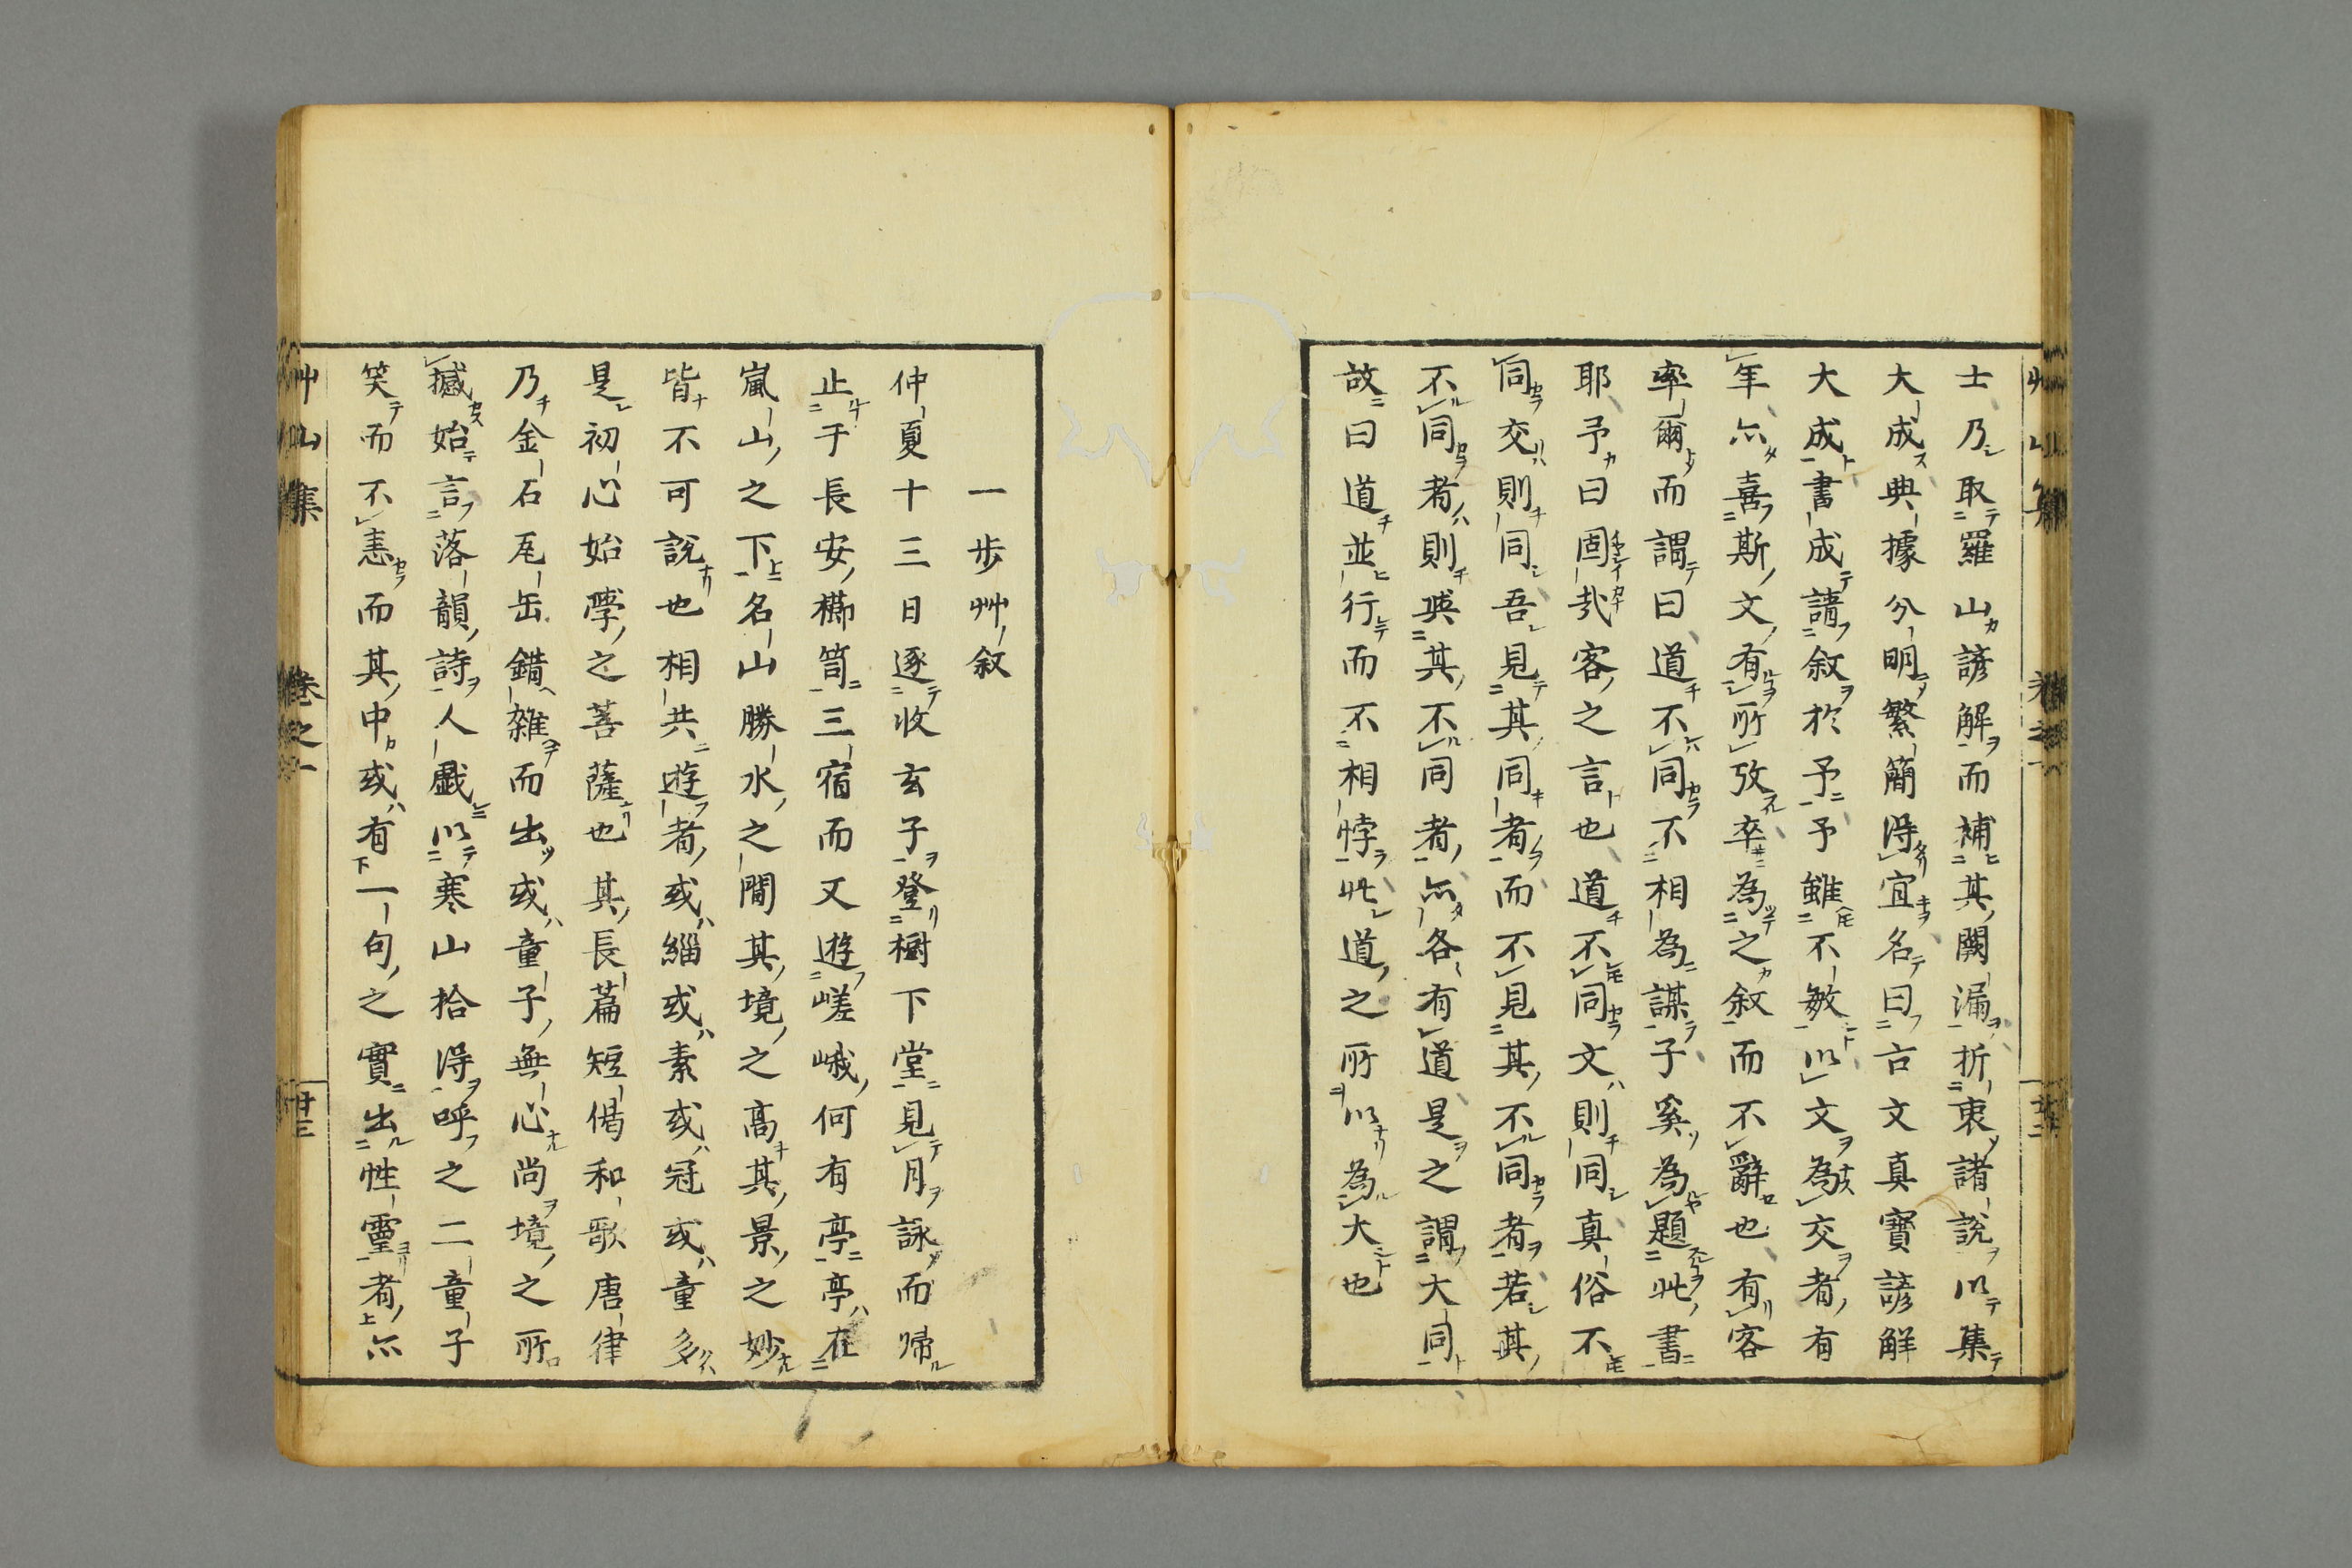 士乃取羅山諺解而補其闕漏折衷諸說以集
大成典據分明繁簡得宜名曰古文真寶諺解
大成書成請叙於予予雖不敏以文為交者有
年亦喜斯文有所攷卒為之叙而不辭也有客
率爾而謂曰道不同不相為謀子奚為題此書
耶予曰固哉客之言也道不同文則同真俗不
同交則同吾見其同者而不見其不同者若其
不同者則與其不同者亦各有道是之謂大同
故曰道並行而不相悖此道之所以為大也
一步艸叙
仲夏十三日逐收玄子登樹下堂見月詠而歸
止于長安櫛笥三宿而又遊嵯峨何有亭亭在
嵐山之下名山勝水之間其境之高其景之妙
皆不可說也相共遊者或緇或素或冠或童多
是初心始學之菩薩也其長篇短偈和歌唐律
乃金石瓦缶錯雜而出或童子無心尚境之所
撼始言落韻詩人戯以寒山拾得呼之二童子
笑而不恚而其中或有一句之實出性靈者亦
艸山集
卷之一
廿三